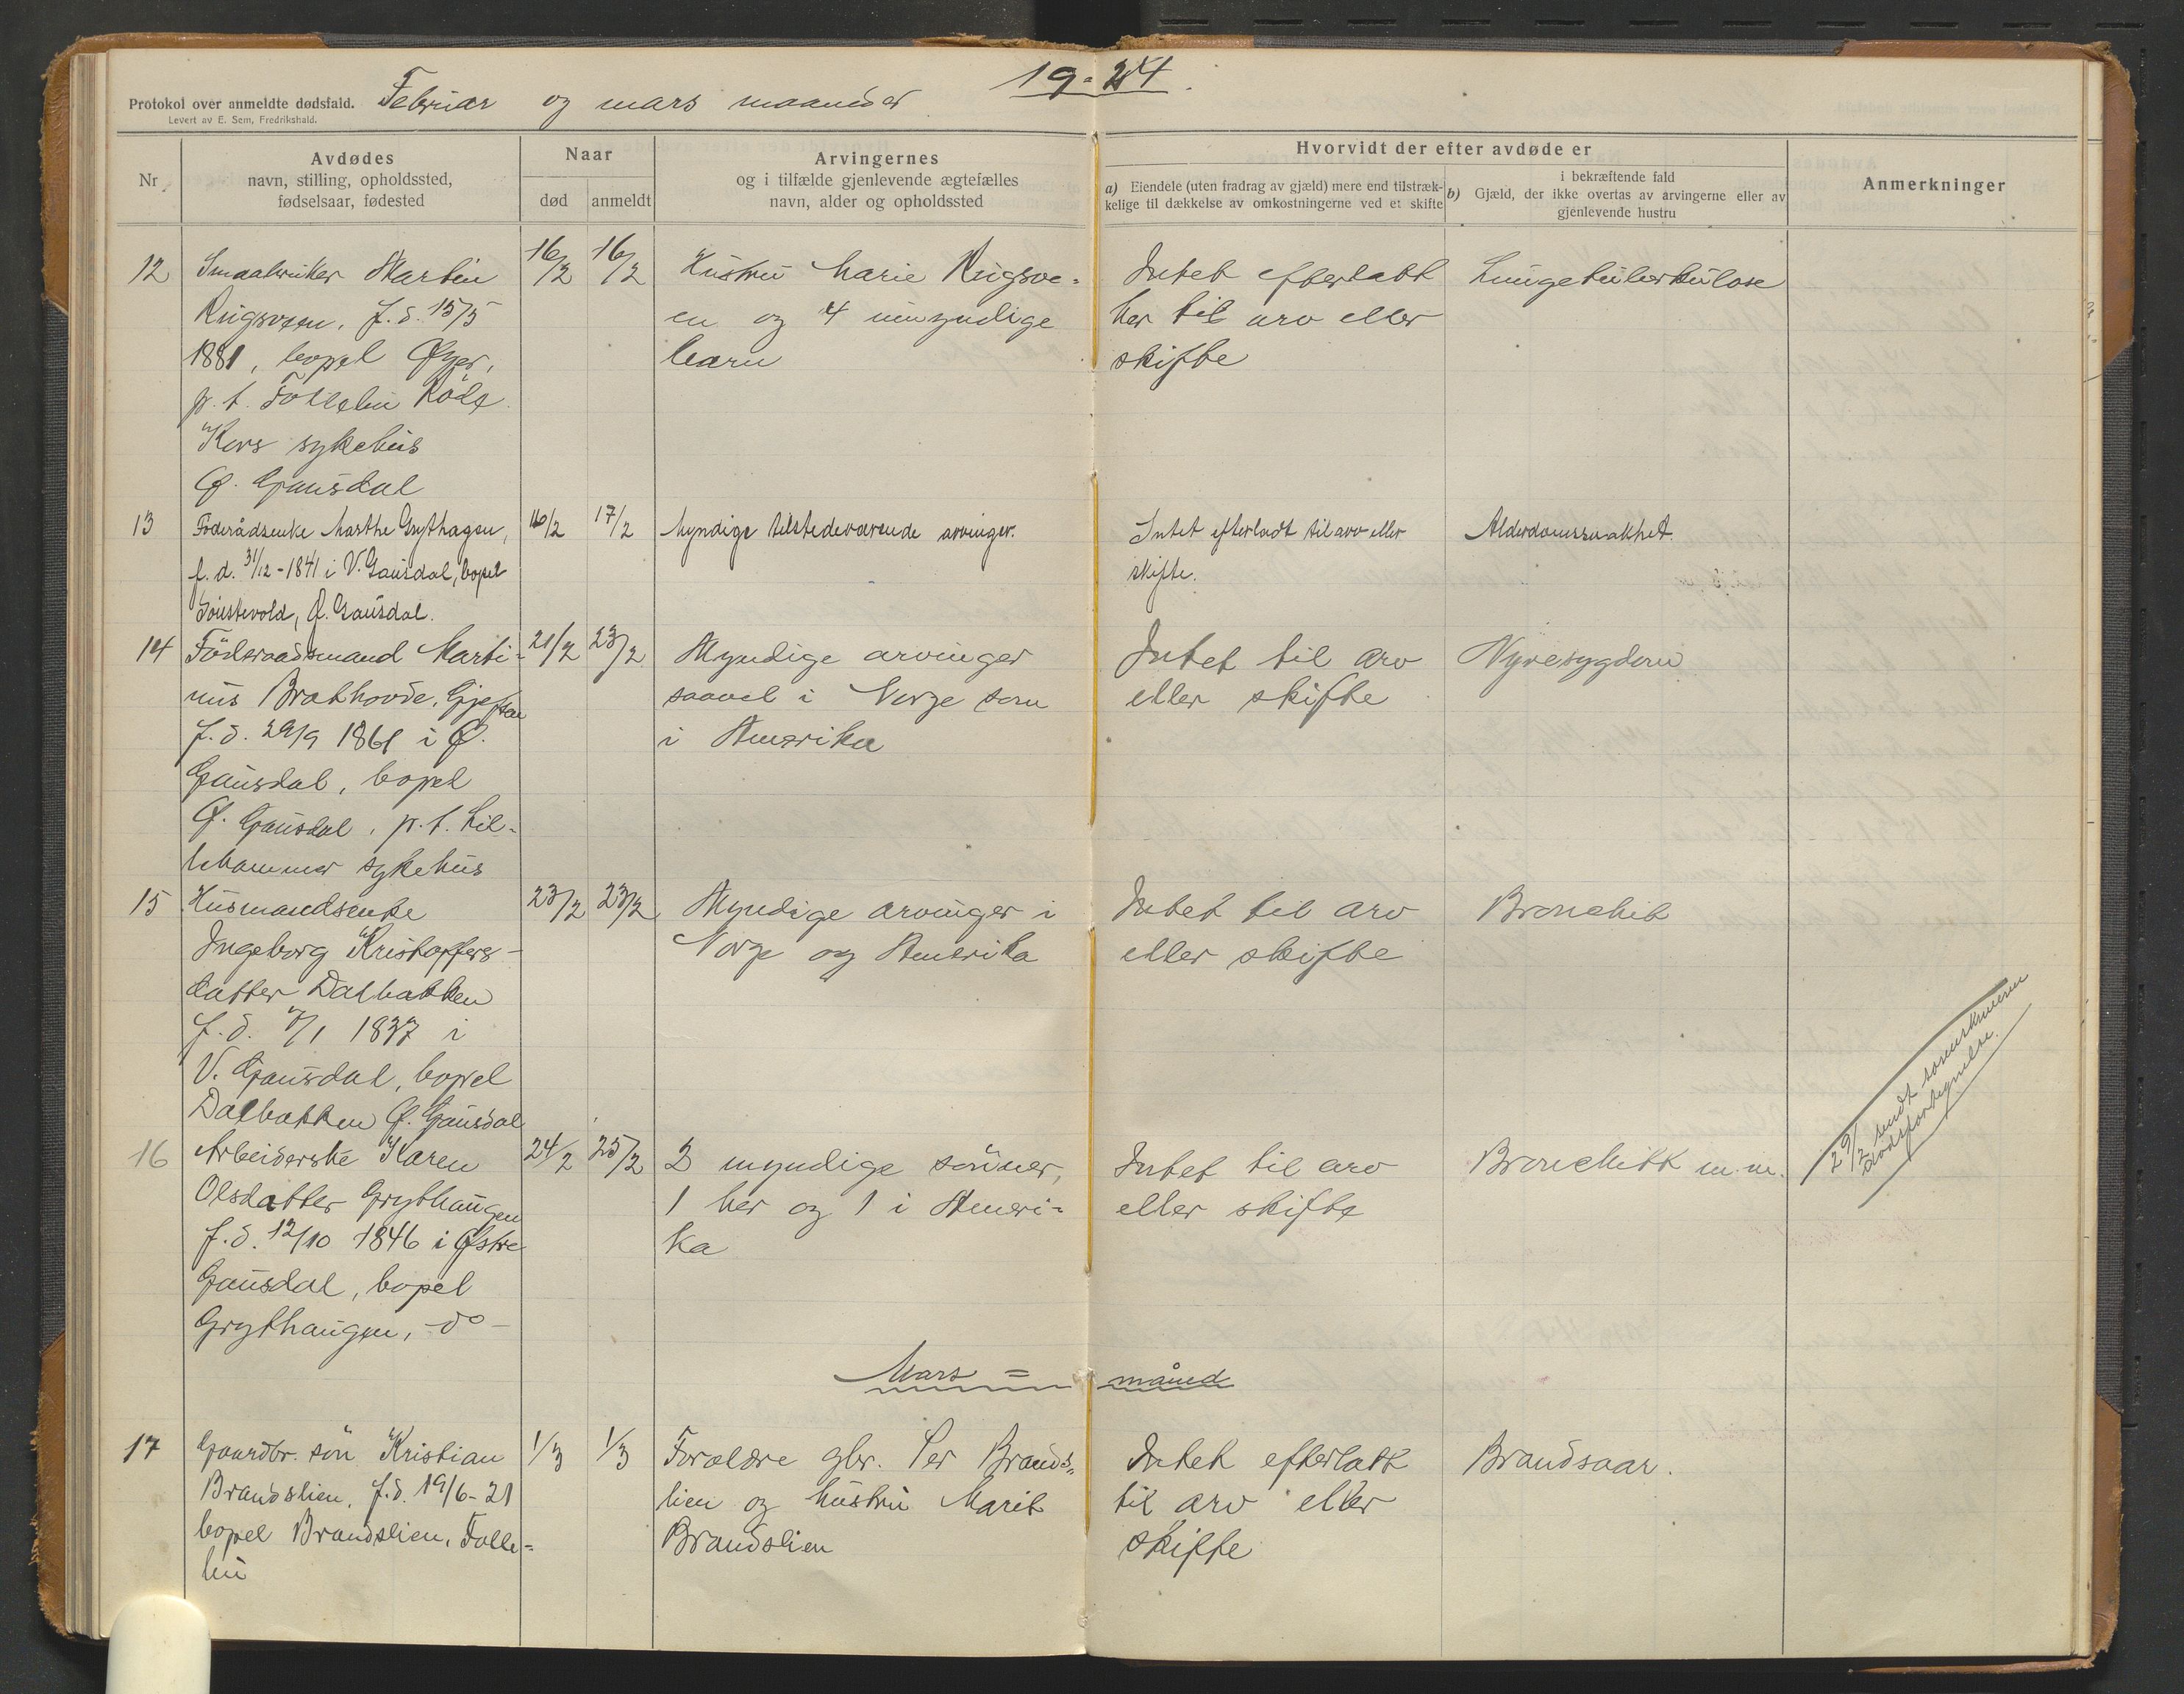 19-24.
Protokol over anmeldte dødsfald. Februar og mars maaneder
Levert av E. Sem, Fredrikshald.
Nr
Avdødes
navn, stilling, opholdssted,
fødselsaar, fødested
Naar
død
anmeldt
Arvingernes
og i tilfælde gjenlevende ægtefælles
navn, alder og opholdssted
Hvorvidt der efter avdøde er
a) Eiendele (uten fradrag av gjæld) mere end tilstræk-
kelige til dækkelse av omkostningerne ved et skifte
i bekræftende fald
b) Gjæld, der ikke overtas av arvingerne eller av
gjenlevende hustru
Anmerkninger
12
Smaabruker Martin
Rugsveen, f.d. 15/5
1881, bopel Øyer,
p.t. Follebu Röde
Kors sykehus
Ø. Gausdal
16/2
16/2
Hustru Marie Rugsve-
en og 4 umyndige
barn
Intet efterlatt
her til arv eller
skifte
Lungetuberkulose
13
Föderådsenke Marthe Grythagen,
f.d. 31/12-1841 i V. Gausdal, bopel
Ø. Gausdal.
16/2
17/2
Myndige tilstedeværende arvinger.
Intet efterladt til arv eller
skifte.
Alderdomssvakhet.
14
Föderaadsmand Marti-
nus Brathovde,
f.d. 29/9 1861 i Ø.
Gausdal, bopel
Ø. Gausdal, p.t. Lil-
lehammer sykehus
21/2
23/2
Myndige arvinger
saavel i Norge som
i Amerika
Intet til arv
eller skifte
Nyresygdom
15
Husmandsenke
Ingeborg Kristoffers-
datter Dalbakken
f.d. 7/1 1837 i
V. Gausdal, bopel
Dalbakken Ø. Gausdal
23/2
23/2
Myndige arvinger i
Norge og Amerika
Intet til arv
eller skifte
Bronchit
16
Arbeiderske Karen
Olsdatter Grythaugen
f.d. 12/10 1846 i Østre
Gausdal, bopel
Grythaugen, -do-
24/2
25/2
2 myndige sönner,
1 her og 1 i Ameri-
ka
Intet til arv
eller skifte
Bronchitt m.m.
29/2 sendt sorenskriveren
dödsfortegnelse.
Mars = månd
17
Gaardbr. sön Kristian
Brandslien, f.d. 19/6-21
bopel Brandslien, Folle-
bu
1/3
1/3
Forældre gbr. Per Brands-
lien og hustru Marit
Brandslien
Intet efterlatt
til arv eller
skifte
Brandsaar.